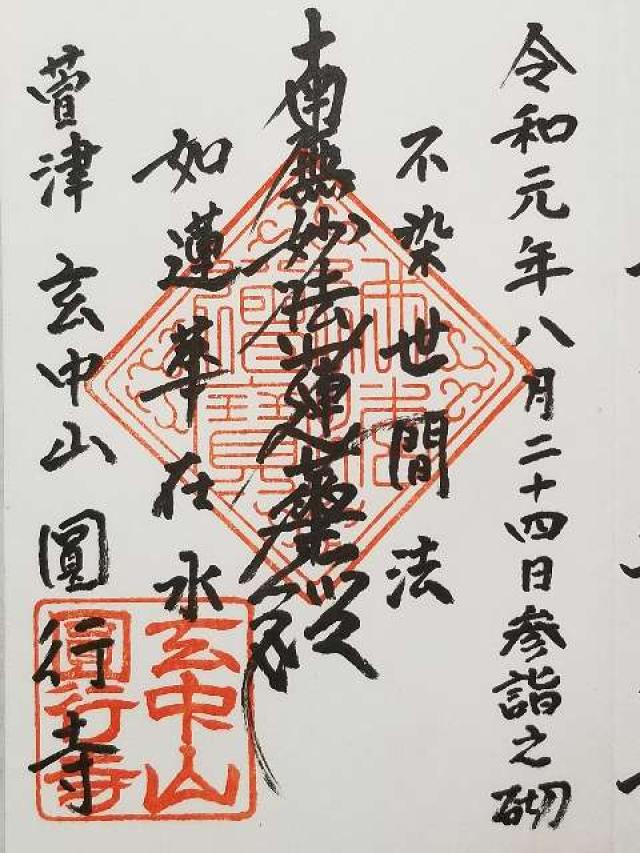 令和元年八月二十四日参詣之砌
不染世間法
南無妙法蓮華經
如蓮華在水
萱津 玄中山 圓行寺
玄中山
圓行寺